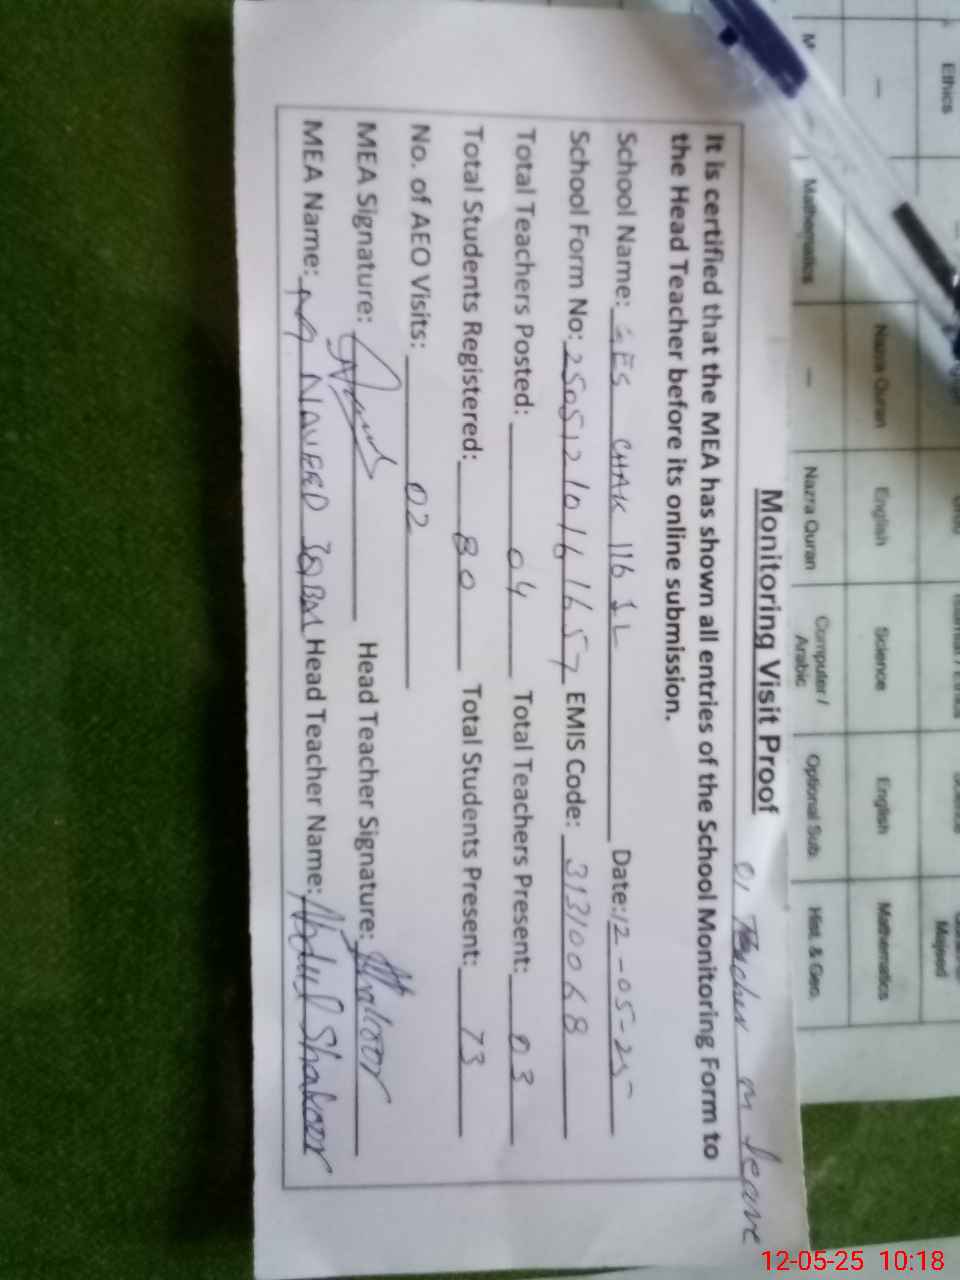 Monitoring Visit Proof
01 Teacher on leave
It is certified that the MEA has shown all entries of the School Monitoring Form to
the Head Teacher before its online submission.
School Name: GES CHAK 116 1L Date: 12-05-25
School Form No: 25051210161657 EMIS Code: 31310068
Total Teachers Posted: 04 Total Teachers Present: 03
Total Students Registered: 80 Total Students Present: 73
No. of AEO Visits: 02
MEA Signature: Head Teacher Signature: AShakoor
MEA Name: NAVEED IQBAL Head Teacher Name: Abdul Shakoor
Ethics
— Nazra Quran English Science English Mathematics
Mathematics — Nazra Quran Computer / Arabic Optional Sub. Hist. & Geo.
12-05-25 10:18